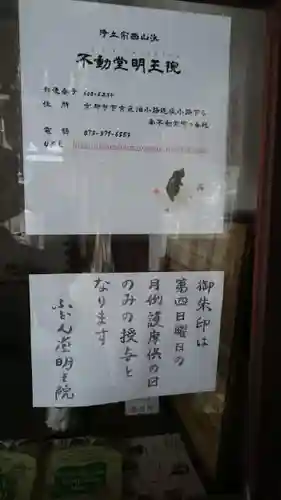 浄土宗西山派
不動堂明王院
郵便番号
住所 京都市下京区油小路通塩小路下る
南不動堂町7番地
電話
URL
御朱印は
第四日曜日の
月例護摩供の日
のみの授与と
なります
ふどん堂明王院